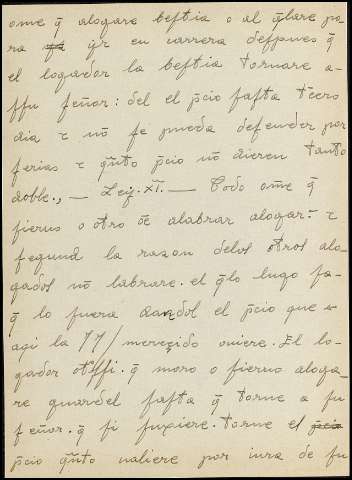 ome q̃ alogare beſtia o al q̃lare pa-
ra yr en carrera deſpues q̃
el logador la beſtia tornare a-
ſſu ſeñor: del el p̃cio faſta t̃cero
dia ⁊ nõ ſe pueda defender por
ferias ⁊ q̃nto p̃cio nõ dieren tanto
doble., — Ley. XI. — Todo om̃e q̃
ſieruo o otro õe alabrar alogar. ⁊
ſegund la razon delos otros alo-
gados nõ labrare. el q̃lo luego fa-
q̃ lo fuera dandol el p̃cio que
aqi la 77/ mereçido ouiere. El lo-
gador otſſi. q̃ moro o ſieruo aloga-
re guardel faſta q̃ torne a ſu
ſeñor. q̃ ſi fuxiere. torne el
p̃cio q̃nto ualiere por iura de ſu